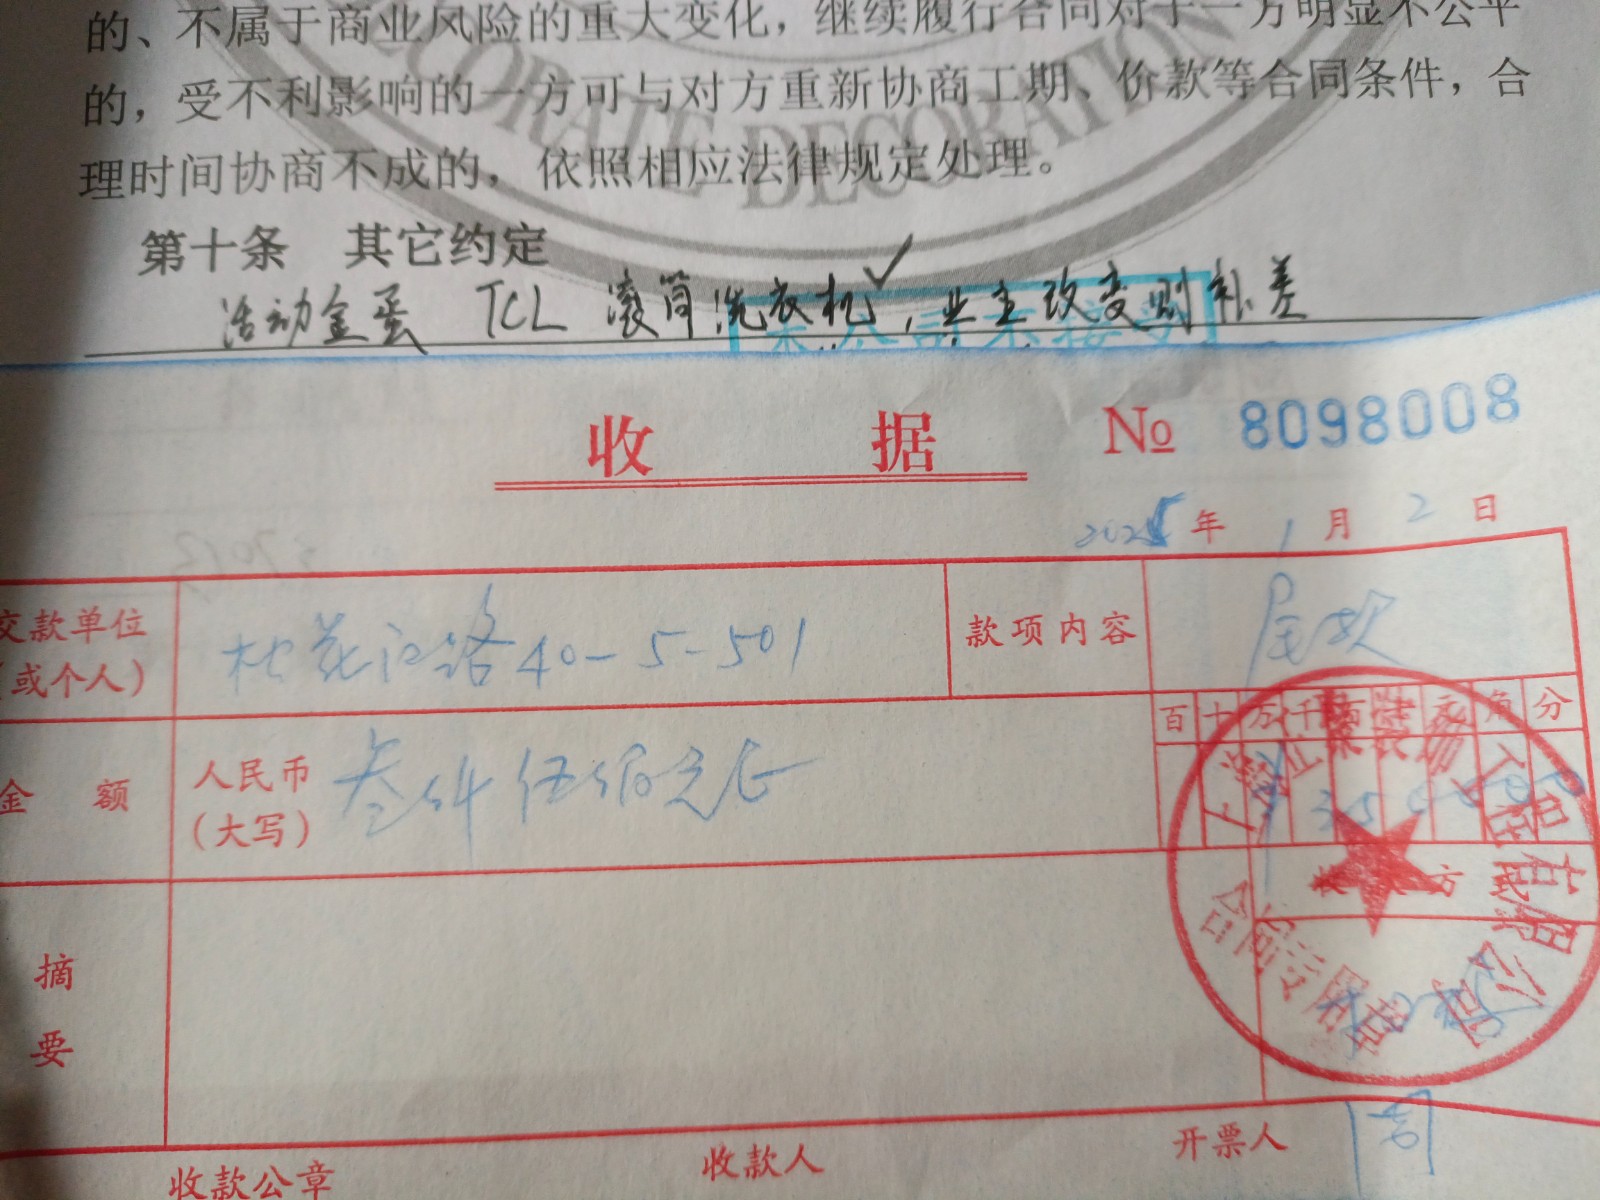 的、不属于商业风险的重大变化，继续履行合同对于一方明显不公平
的，受不利影响的一方可与对方重新协商工期、价款等合同条件，合
理时间协商不成的，依照相应法律规定处理。
CORATE DECORATION
第十条 其它约定
活动金蛋 TCL 滚筒洗衣机✓，业主改变则补差
收 据 № 8098008
2025 年 1 月 2 日
交款单位
（或个人）
江路40-5-501
款项内容
尾款
百 十 万 千 百 角 分
金 额
人民币
（大写）
叁仟伍佰元正
装饰 有限公司
合同专用章
摘
要
收款公章
收款人
开票人